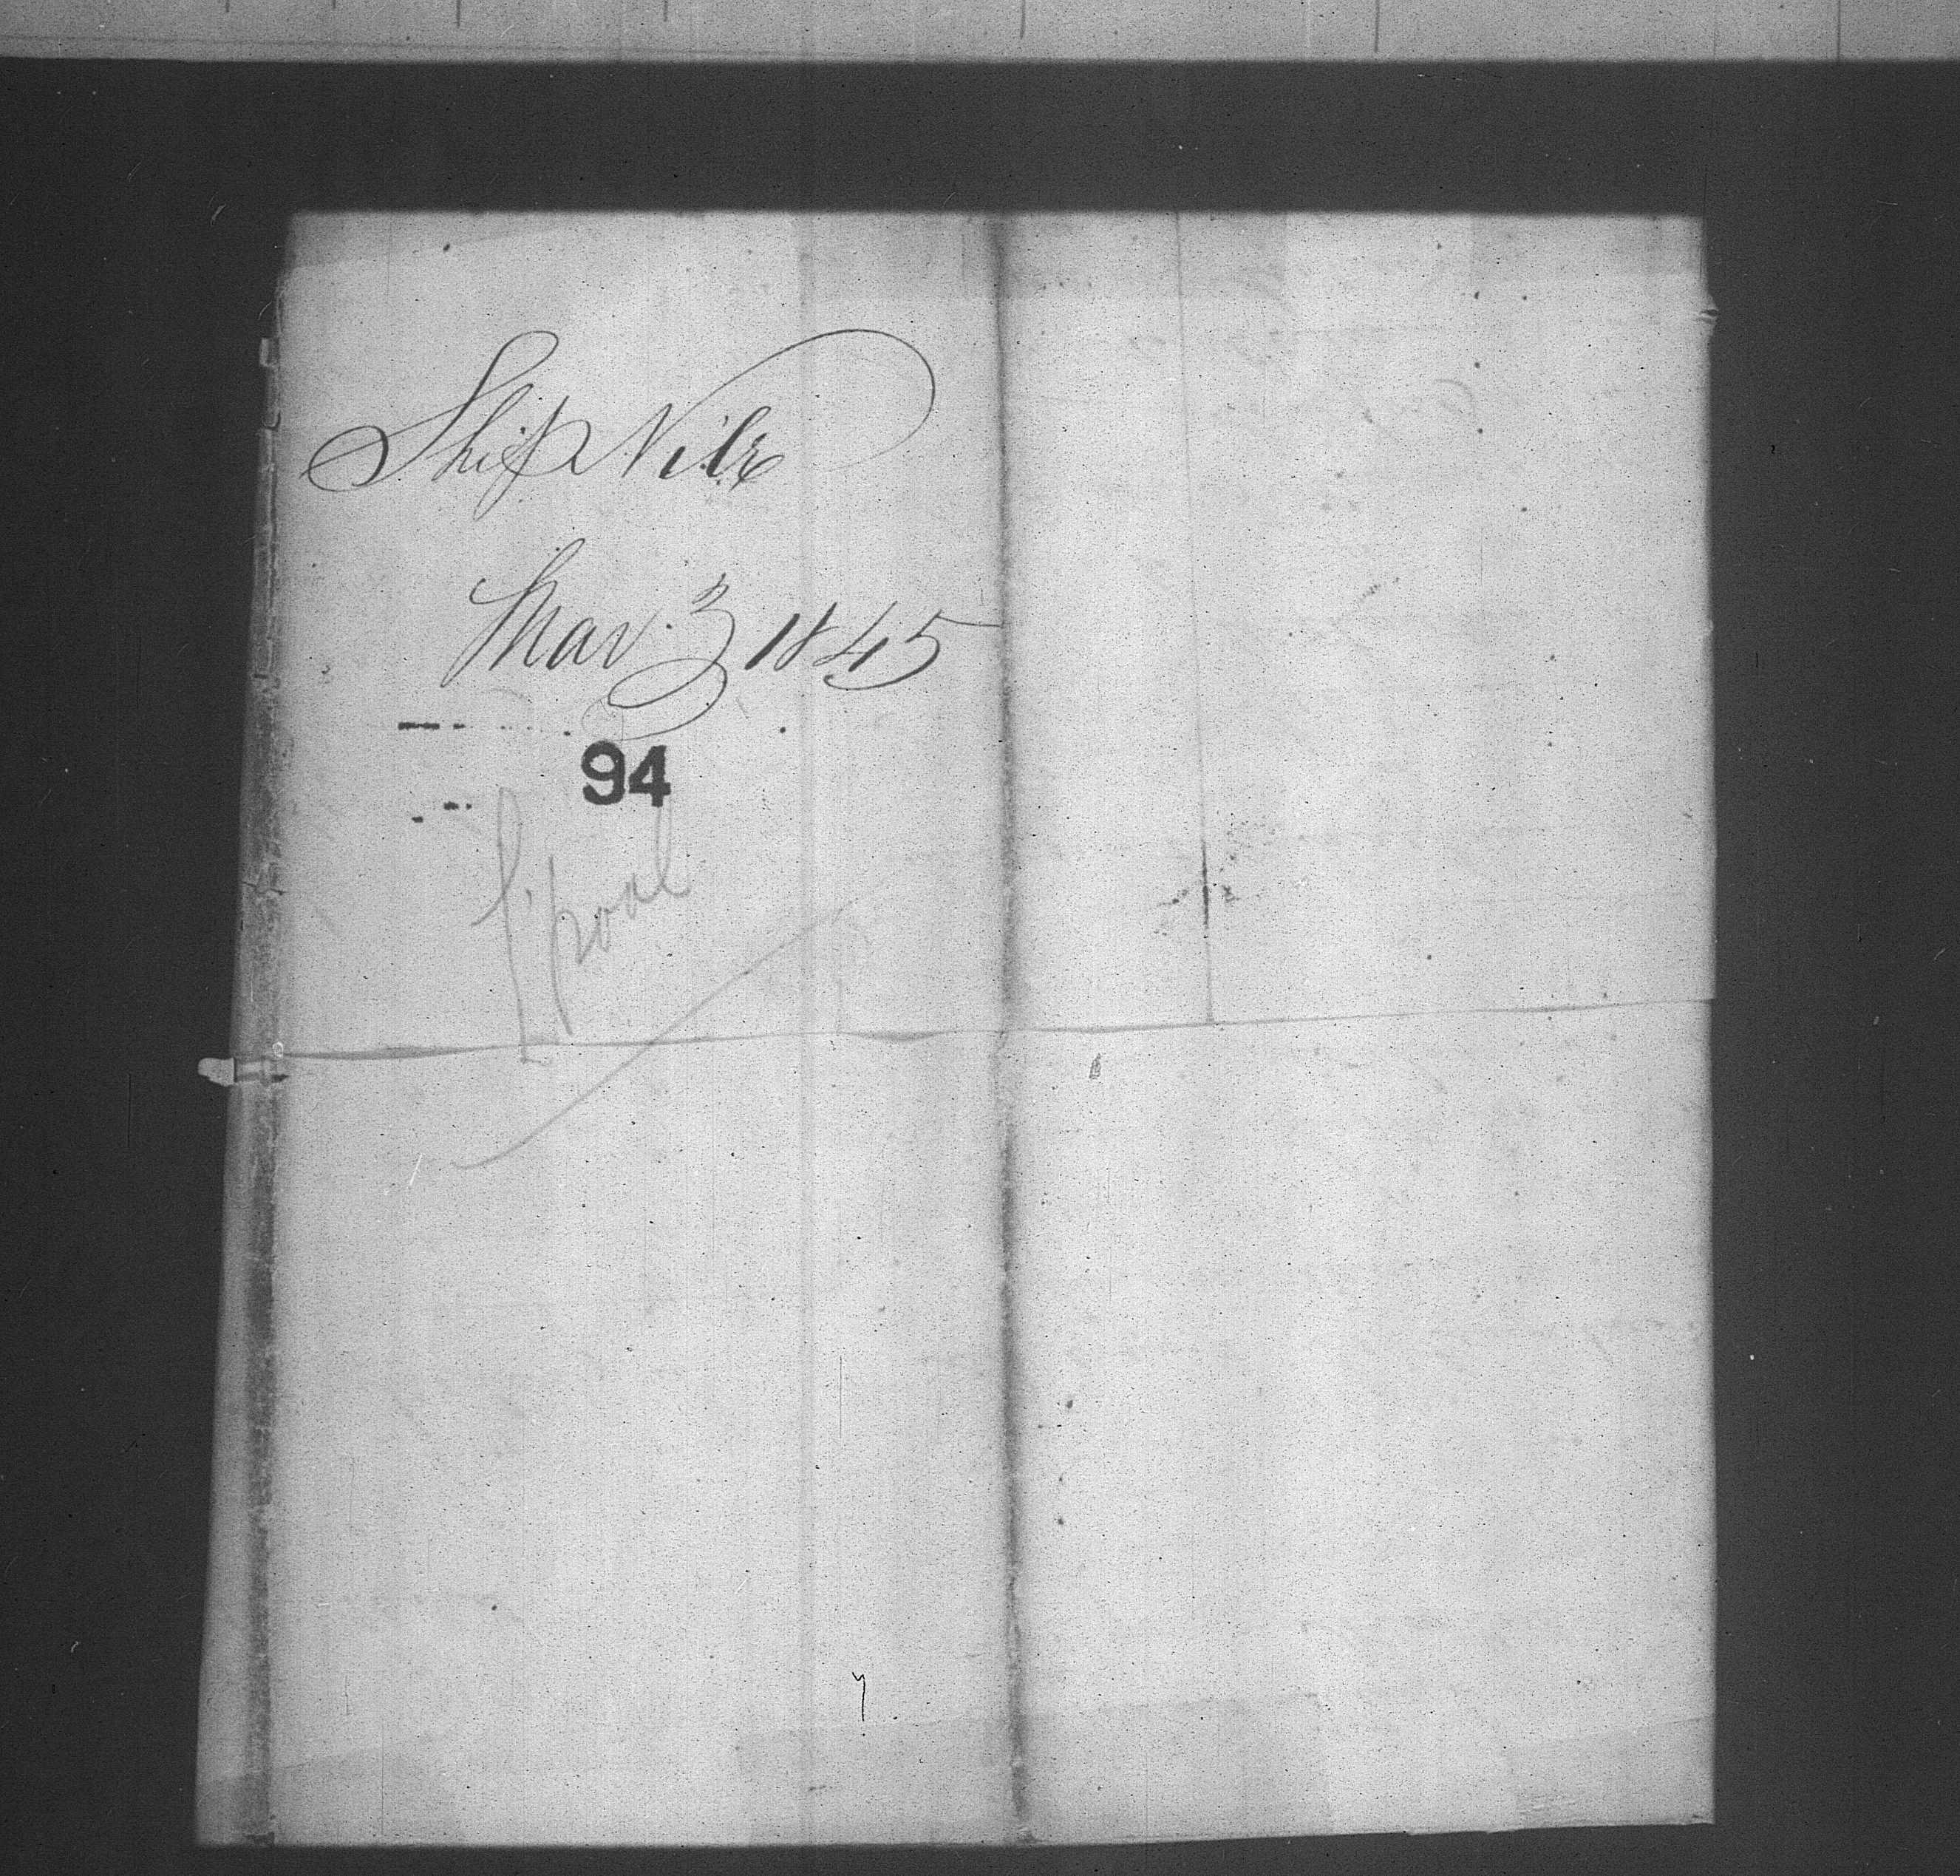 Ship Nile
Mar. 3 1845
94
L'pool